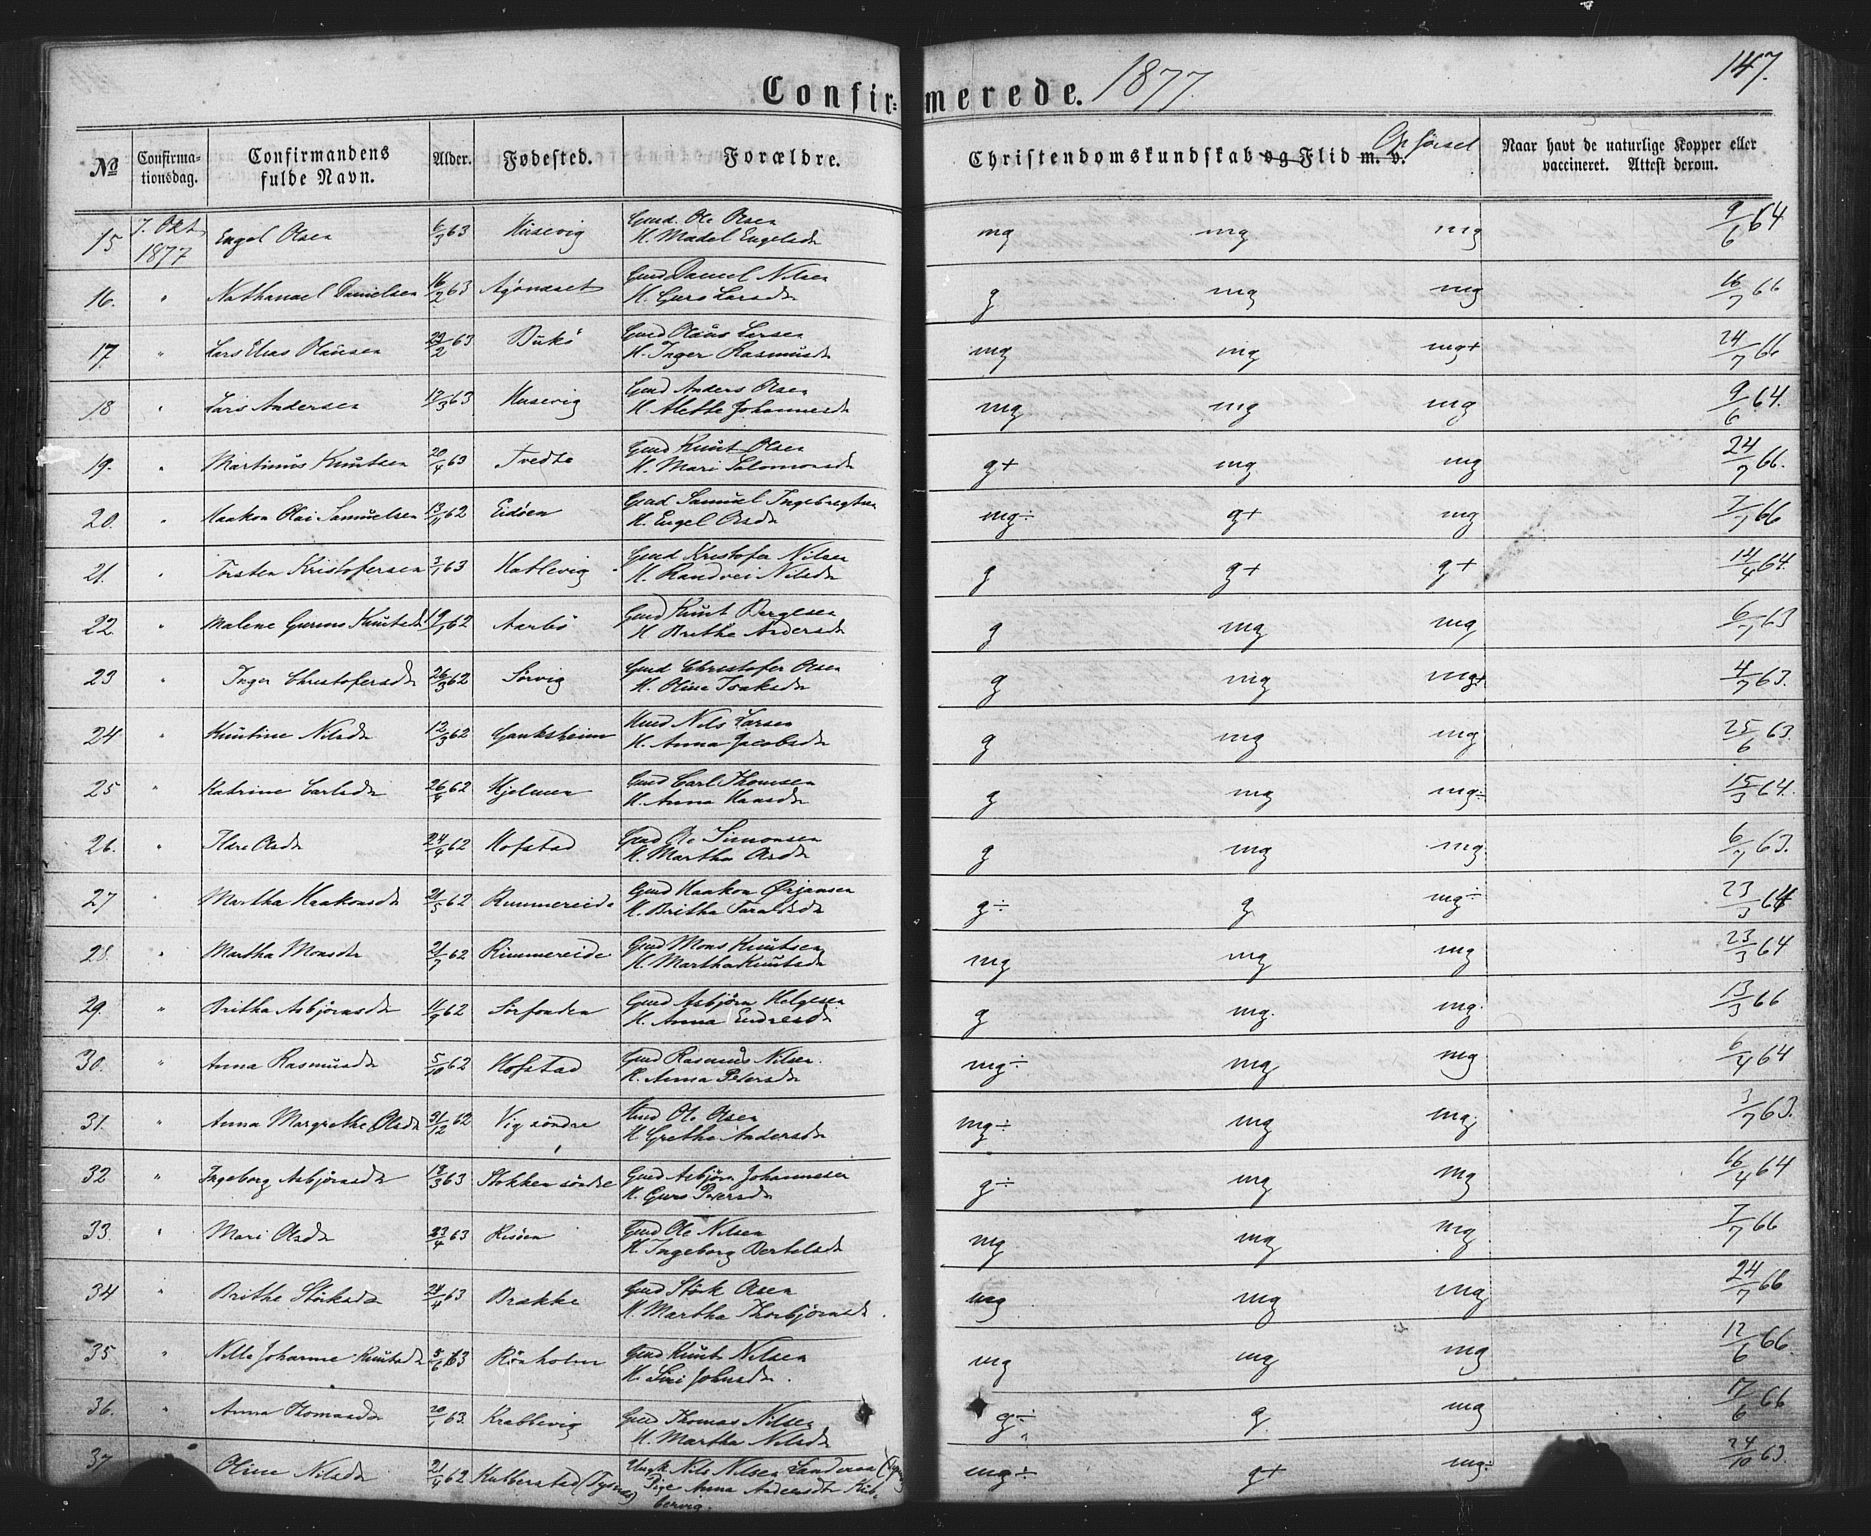 Confirmerede. 1877.
147.
No
Confirmationsdag.
Confirmandens fulde Navn.
Alder.
Fødested.
Forældre.
Christendomskundskab og Flid m. v. Opførsel
Naar havt de naturlige Kopper eller vaccineret. Attest derom.
15 7. Okt 1877 Engel Olsen 6/3 63 Husevig Gmd. Ole Olsen
H. Madel Engelsdr mg mg mg 9/6 64
16. " Nathanael Danielsen 16/2 63 Gmd Daniel Nilsen
H. Guro Larsdr g mg mg 16/7 66
17. " Lars Elias Olausen 22/2 63 Bukö Gmd Olaus Larsen
H. Inger Rasmusdr mg mg mg+ 24/7 66
18 " Lars Andersen 17/3 63 Husevig Gmd Anders Olsen
H. Alethe Johannesdr mg mg mg 9/6 64.
19. " Martinus Knutsen 20/4 63 Tvedte Gmd Knut Olsen
H. Mari Salomonsdr g+ mg mg 24/7 66.
20. " Haakon Olai Samuelsen 13/11 62 Eidöen Gmd Samuel Ingebregtsen
H. Engel Olsdr mg÷ g+ mg 7/7 66
21. " Torsten Kristofersen 3/1 63 Hatlevig Gmd Kristofer Nilsen
H. Randvei Nilsdr g g+ g+ 14/4 64.
22. " Malene Gurine Knutsdr 62 Aarbö Gmd Knut Bergesen
H. Brithe Andersdr g mg mg 6/7 63
23 " Inger Christofersdr 26/3 62 Sörvig Gmd Christofer Olsen
H. Oline Isaksdr g mg mg+ 4/7 63.
24 " Knutine Nilsdr 12/3 62 Gauksheim Hmd Nils Larsen
H. Anna Jacobsdr g mg mg 25/6 63.
25 " Katrine Carlsdr 26/4 62 Hjelmen Gmd Carl Thomsen
H. Anna Hansdr g mg mg÷ 15/3 64.
26. " Olsdr 24/4 62 Hofstad Gmd Ole Simonsen
H. Martha Olsdr g mg mg 6/7 63.
27 " Martha Haakonsdr 21/5 62 Rimmereide Gmd Haakon Ørjansen
H. Britha Taraldsdr g÷ g mg÷ 23/3 64
28. " Martha Monsdr 21/7 62 Rimmereide Gmd Mons Knutsen
H. Martha Knutsdr mg mg mg 23/3 64
29. " Britha Asbjörnsdr 11/9 62 Sörfonden Gmd Asbjörn Helgesen
H. Anna Endresdr g mg. mg. 13/3 66
30. " Anna Rasmusdr 5/10 62 Hofstad Gmd Rasmus Nilsen.
H. Anna Petersdr mg÷ mg mg 6/4 64
31. " Anna Margrethe Olsdr 31/12 62 Vig söndre Hmd Ole Olsen
H Grethe Andersdr mg÷ mg mg. 3/7 63.
32 " Ingeborg Asbjörnsdr 18/3 63 Stokken söndre Gmd Asbjörn Johannesen
H. Guro Petersdr g÷ mg mg 16/4 64
33. " Mari Olsdr 23/4 63 Risöen Gmd Ole Nilsen
H Ingeborg Bertelsdr mg mg mg 7/7 66
34 " Brithe Störksdr 24/4 63 Brakke Gmd Störk Olsen
H. Martha Thorbjörnsdr. mg mg mg 24/7 66
35 " Nille Johanne Knutsdr 5/6 63 Rönholm Gmd Knut Nilsen
H. Siri Johnsdr. mg mg mg 12/6 66.
36. " Anna Thomasdr 20/1 63. Krablevig Gmd Thomas Nilsen
H. Martha Nilsdr g÷ g. mg 17/6 66
37 Oline Nilsdr 21/4 62 Hubberstad (Tysnes) Ungk Nils Nilsen Landeraa (Tysnes)
Pige Anna Andersdr
mg÷ g+ mg÷ 24/10 63.